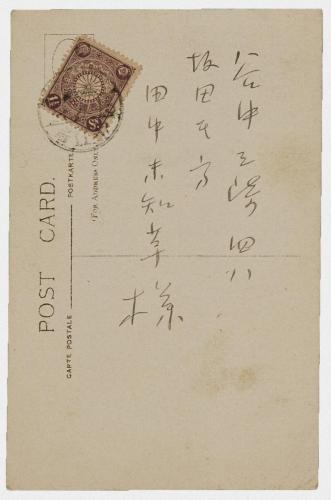 谷中三崎四八
坂田方
田中未知草
様
POST CARD.
POSTKARTE
CARTE POSTALE
(FOR ADDRESS ONLY)